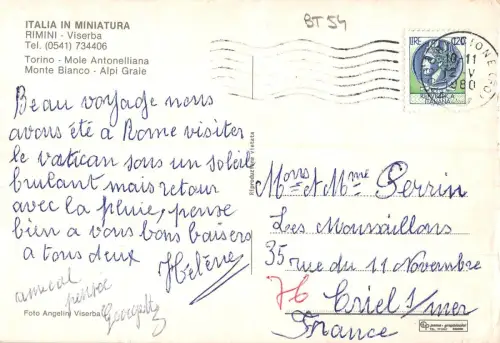 ITALIA IN MINIATURA
RIMINI - Viserba
Tel. (0541) 734406
Torino - Mole Antonelliana
Monte Bianco - Alpi Graie
BT 54
LIRE 120
10-11
12 V
1980
ITALIANA
Beau voyage nous
avons été à Rome visiter
le vatican sous un soleil
brulant mais retour
avec la pluie, pense
bien a vous bons baisers
a tous deux
Hélène
amical
Georgette
Foto Angelini Viserba
Riproduzione Vietata
Monrs et Mme Perrin
Les Moussaillons
35 rue du 11 Novembre
76 Criel s/mer
France